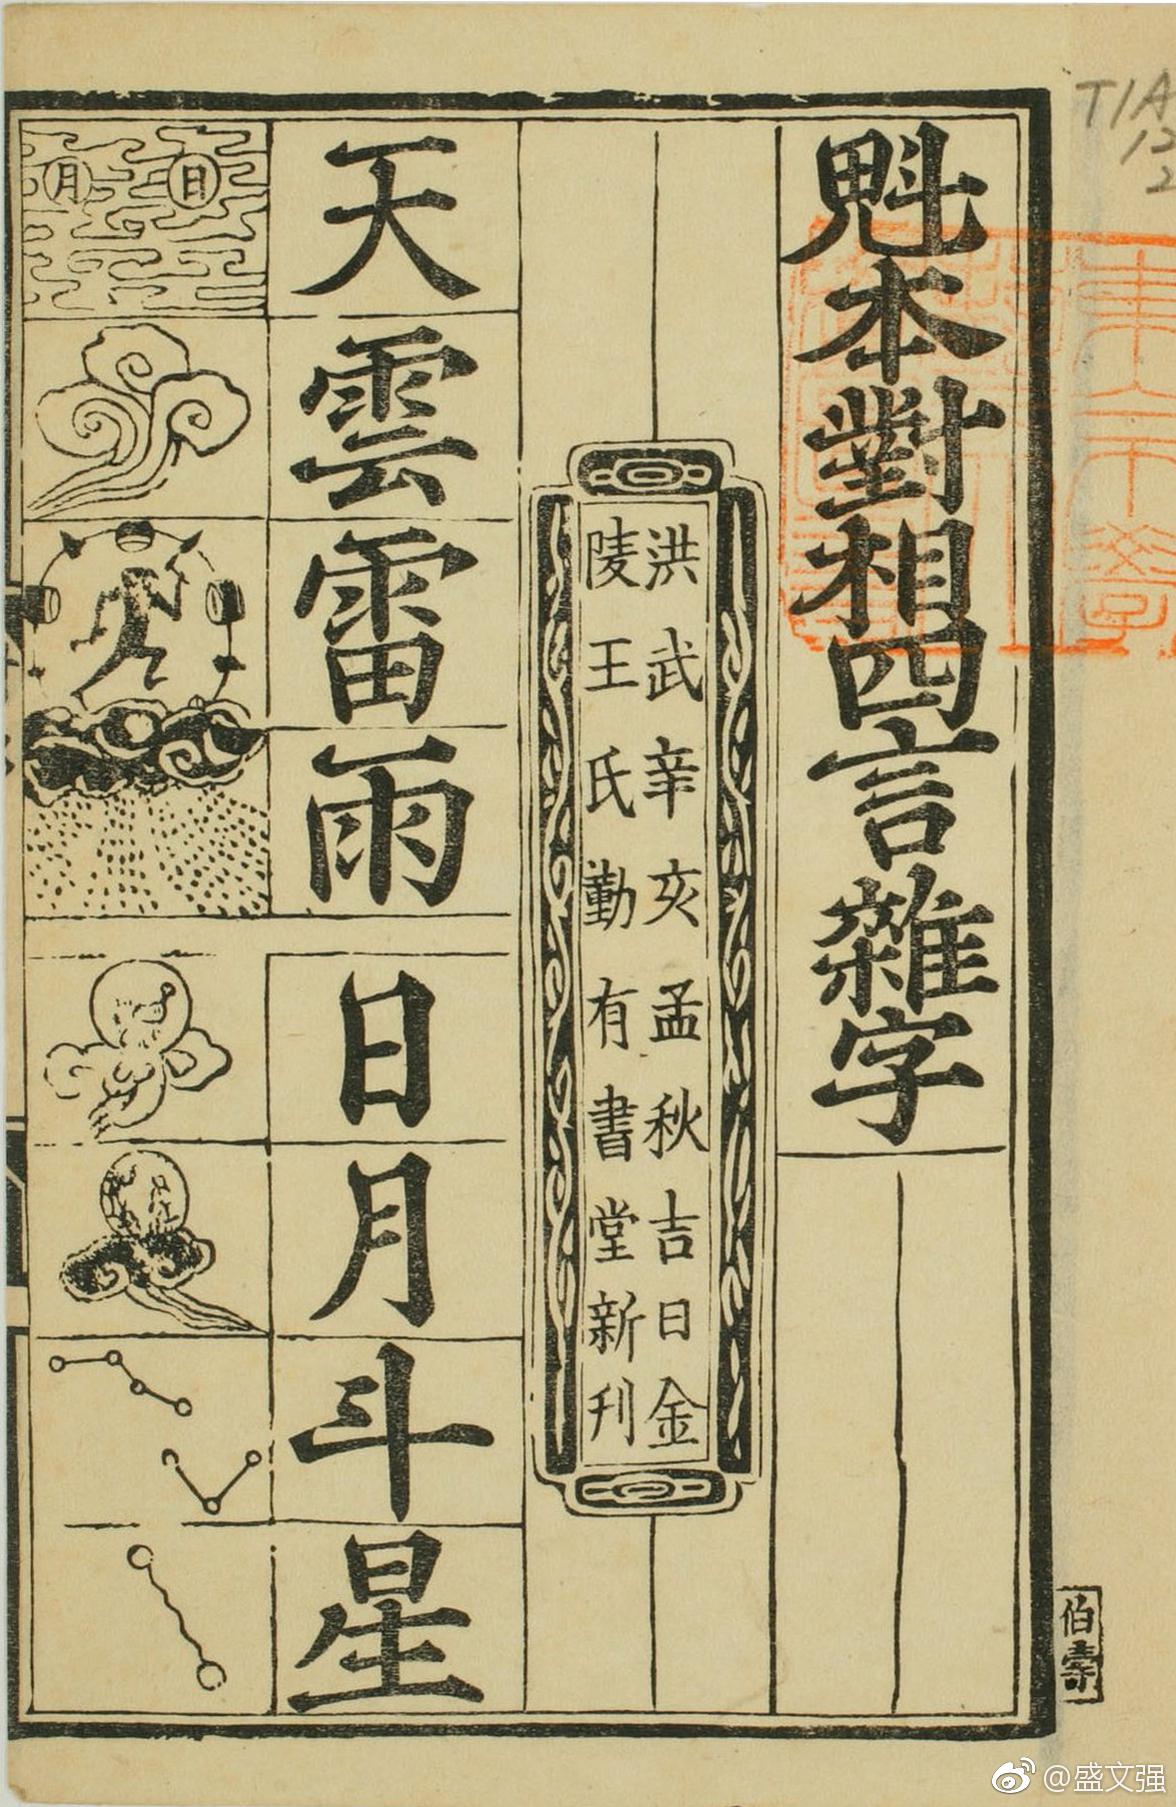 魁本對相四言雜字
洪武辛亥孟秋吉日金
陵王氏勤有書堂新刊
天雲雷雨
日月斗星
日
月
伯壽
T/A
@盛文强